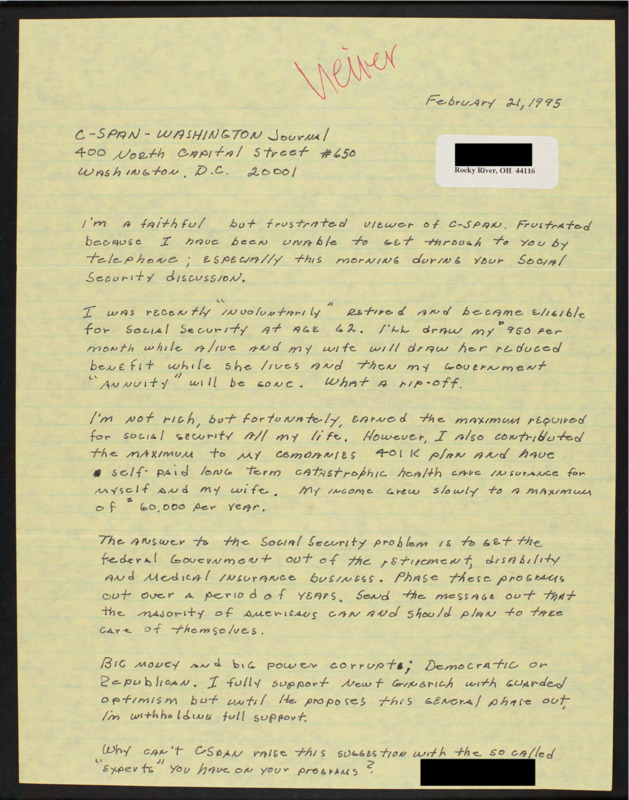 February 21, 1995
C-SPAN - WASHINGTON Journal
400 North Capital Street #650
Washington, D.C. 20001
Rocky River, OH 44116
I'm a faithful but frustrated viewer of C-SPAN. Frustrated
because I have been unable to get through to you by
telephone; especially this morning during your Social
Security discussion.
I was recently "involuntarily" retired and became eligible
for Social Security at age 62. I'll draw my $950 per
month while alive and my wife will draw her reduced
benefit while she lives and then my government
"Annuity" will be gone. What a rip-off.
I'm not rich, but fortunately, earned the maximum required
for social security all my life. However, I also contributed
the maximum to my companies 401K plan and have
self-paid long term catastrophic health care insurance for
myself and my wife. My income grew slowly to a maximum
of $60,000 per year.
The answer to the Social Security problem is to get the
federal government out of the retirement, disability
and medical insurance business. Phase these programs
out over a period of years. Send the message out that
the majority of Americans can and should plan to take
care of themselves.
Big money and big power corrupts; Democratic or
Republican. I fully support Newt Gingrich with guarded
optimism but until he proposes this general phase out,
I'm withholding full support.
Why can't C-SPAN raise this suggestion with the so called
"experts" you have on your programs?